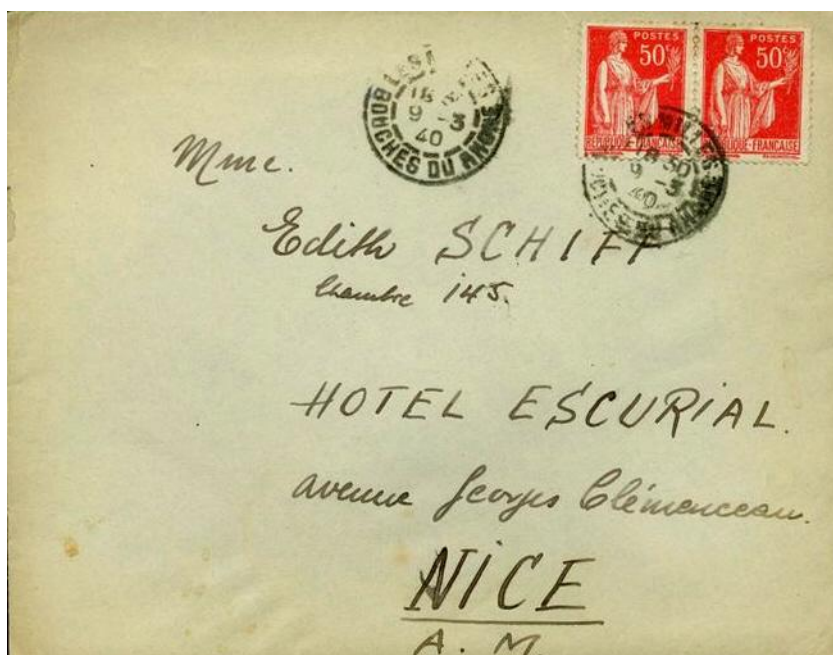 POSTES
50c
REPUBLIQUE FRANÇAISE
POSTES
50c
PUBLIQUE FRANÇAISE
LES
18
9 -3
40
BOUCHES DU RHONE
MILLES
18 30
9 -3
40
DU RHONE
Mme.
Edith SCHIFF
Chambre 145.
HOTEL ESCURIAL.
avenue Georges Clémenceau.
NICE
A. M.